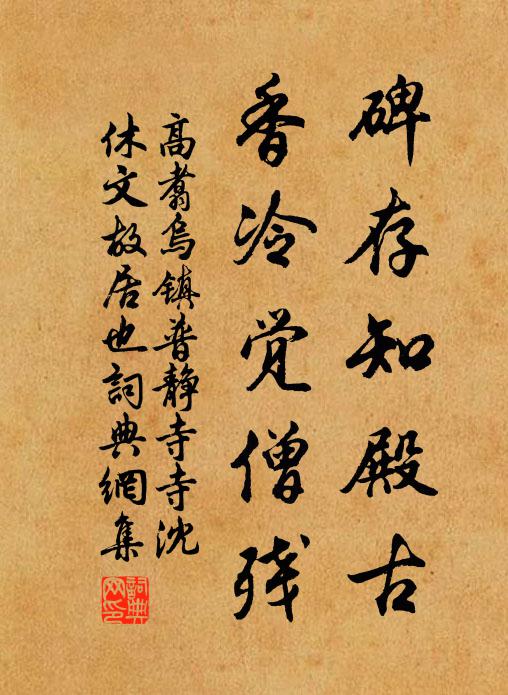 碑存知殿古
香冷觉僧残
高翥乌镇普静寺寺沈
休文故居也词典網集
词典网印